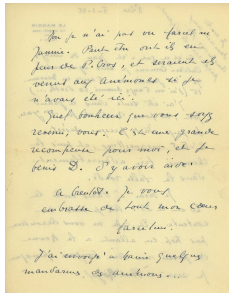 Non je n'ai pas vu
Jeanne. Peut-être ont ils eu
peur de P. Cros, et seraient ils
venus aux Anémones si je
n'avais été ici.
Quel bonheur que vous soyez
revenu, vous. C'est une grande
récompense pour moi, et je
bénis D. d'y avoir
A bientôt. Je vous
embrasse de tout mon cœur
J'ai envoyé a quelques
mandarines